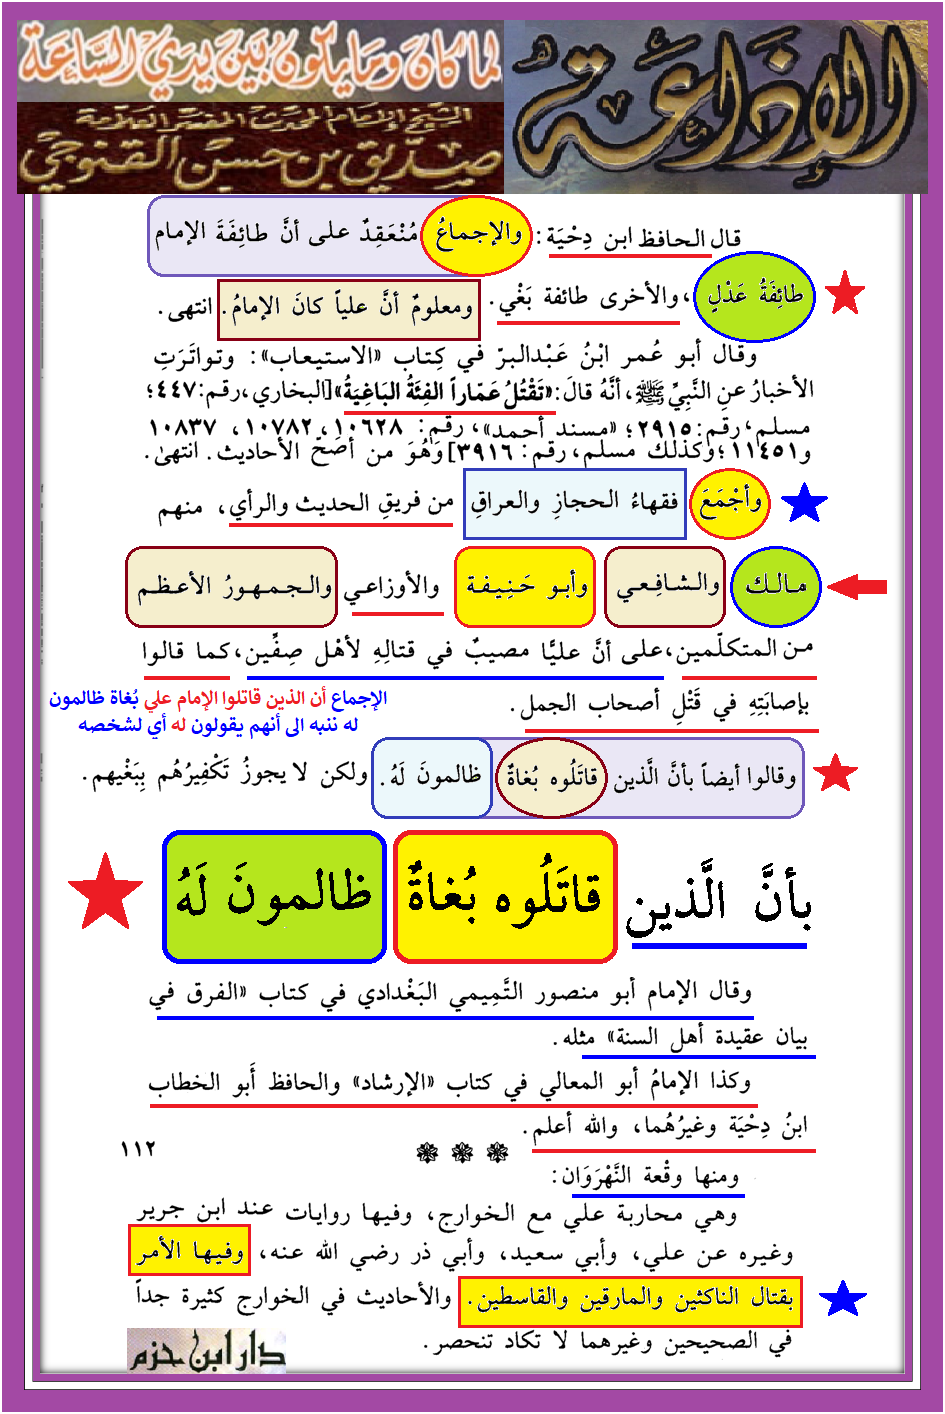 الإذاعة
لما كان وما يكون بين يدي الساعة
الشيخ الإمام المحدث المفسر العلامة
صديق بن حسن القنوجي
قال الحافظ ابن دِحْيَة: والإجماعُ مُنْعَقِدٌ على أنَّ طائِفَةَ الإمام
طائِفَةُ عَدْلٍ، والأخرى طائفة بَغْي. ومعلومٌ أنَّ علياً كانَ الإمامُ. انتهى.
وقال أبو عُمر ابْنُ عَبْدالبرّ في كِتاب «الاستيعاب»: وتواتَرَتِ
الأخبارُ عنِ النَّبيِّ ﷺ، أنَّهُ قالَ: «تَقْتُلُ عَمّاراً الفِئَةُ البَاغِيَةُ» [البخاري، رقم: ٤٤٧؛
مسلم، رقم: ٢٩١٥؛ «مسند أحمد»، رقم: ١٠٦٢٨، ١٠٧٨٢، ١٠٨٣٧
و١١٤٥١؛ وكذلك مسلم، رقم: ٣٩١٦] وَهُوَ من أصَحّ الأحاديث. انتهىٰ.
وأجْمَعَ فقهاءُ الحجازِ والعراقِ من فريقِ الحديث والرأي، منهم
مالك والشافِعي وأبو حَنِيفة والأوزاعي والجمهورُ الأعظم
من المتكلّمين، على أنَّ عليًّا مصيبٌ في قتالِهِ لأهْل صِفِّين، كما قالوا
بإصابَتِهِ في قَتْلِ أصحاب الجمل.
الإجماع أن الذين قاتلوا الإمام علي بُغاة ظالمون
له ننبه الى أنهم يقولون له أي لشخصه
وقالوا أيضاً بأنَّ الَّذين قاتَلُوه بُغاةٌ ظالمونَ لَهُ. ولكن لا يجوزُ تَكْفِيرُهُم بِبَغْيهم.
بأنَّ الَّذين قاتَلُوه بُغاةٌ ظالمونَ لَهُ
وقال الإمام أبو منصور التَّمِيمي البَغْدادي في كتاب «الفرق في
بيان عقيدة أهل السنة» مثله.
وكذا الإمامُ أبو المعالي في كتاب «الإرشاد» والحافظ أَبو الخطاب
ابنُ دِحْيَة وغيرُهُما، والله أعلم.
١١٢
ومنها وقْعة النَّهْرَوَان:
وهي محاربة علي مع الخوارج، وفيها روايات عند ابن جرير
وغيره عن علي، وأبي سعيد، وأبي ذر رضي الله عنه، وفيها الأمر
بقتال الناكثين والمارقين والقاسطين. والأحاديث في الخوارج كثيرة جداً
في الصحيحين وغيرهما لا تكاد تنحصر.
دار ابن حزم